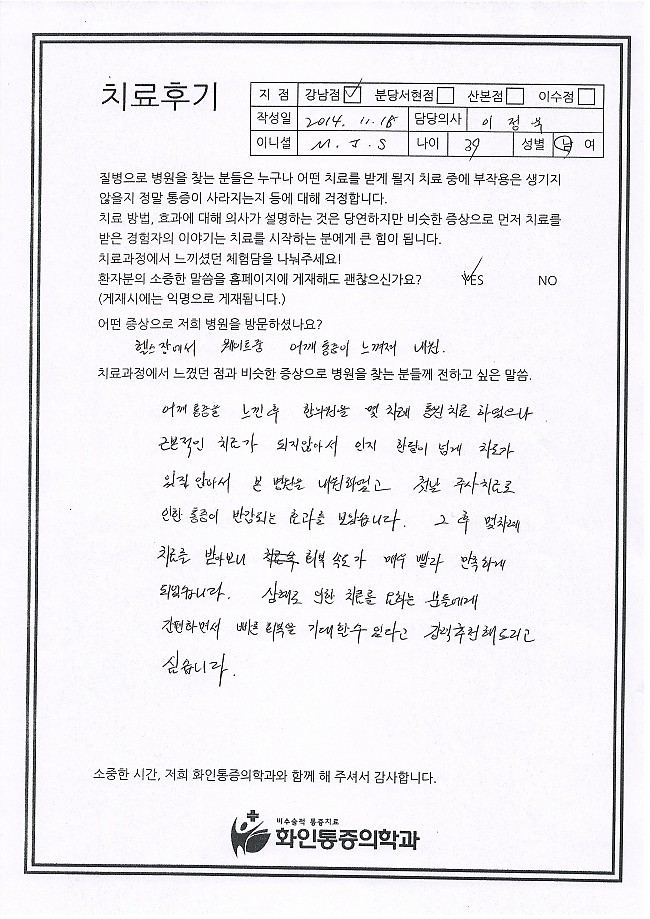 치료후기
지 점 강남점 분당서현점 산본점 이수점
작성일 2014. 11. 18 담당의사 이 정 욱
이니셜 M. J. S 나이 39 성별 남 여
질병으로 병원을 찾는 분들은 누구나 어떤 치료를 받게 될지 치료 중에 부작용은 생기지
않을지 정말 통증이 사라지는지 등에 대해 걱정합니다.
치료 방법, 효과에 대해 의사가 설명하는 것은 당연하지만 비슷한 증상으로 먼저 치료를
받은 경험자의 이야기는 치료를 시작하는 분에게 큰 힘이 됩니다.
치료과정에서 느끼셨던 체험담을 나눠주세요!
환자분의 소중한 말씀을 홈페이지에 게재해도 괜찮으신가요? YES NO
(게재시에는 익명으로 게재됩니다.)
어떤 증상으로 저희 병원을 방문하셨나요?
헬스장에서 웨이트중 어깨 통증이 느껴져 내원.
치료과정에서 느꼈던 점과 비슷한 증상으로 병원을 찾는 분들께 전하고 싶은 말씀.
어깨 통증을 느낀 후 한의원을 몇 차례 통원치료 하였으나
근본적인 치료가 되지않아서 인지 한달이 넘게 치료가
되질 안아서 본 병원을 내원하였고 첫날 주사치료로
인한 통증이 반감되는 효과를 보았습니다. 그 후 몇차례
치료를 받아보니 회복 속도가 매우 빨라 만족하게
되었습니다. 상해로 인한 치료를 요하는 분들에게
간편하면서 빠른 회복을 기대할수 있다고 강력추천해드리고
싶습니다.
소중한 시간, 저희 화인통증의학과와 함께 해 주셔서 감사합니다.
비수술적 통증치료
화인통증의학과